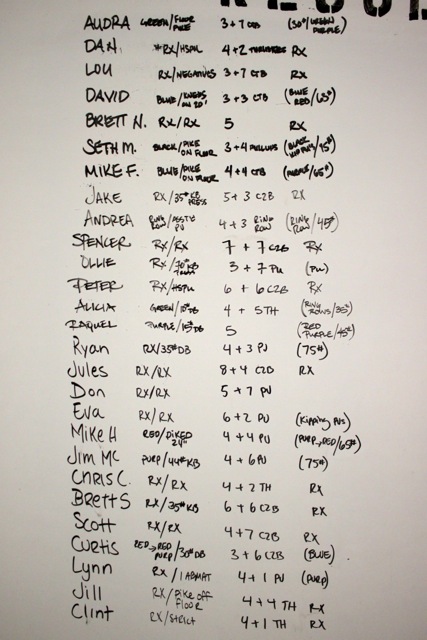 AUDRA GREEN/FLOOR PIKE 3+7 CTB (30#/GREEN PURPLE)
DAN RX/HSPU 4+2 THRUSTERS RX
LOU RX/NEGATIVES 3+7 CTB RX
DAVID BLUE/KNEES ON 20" 3+3 CTB (BLUE RED/65#)
BRETT N. RX/RX 5 RX
SETH M. BLACK/PIKE ON FLOOR 3+4 PULLUPS (BLACK KIPPING/75#)
MIKE F. BLUE/PIKE ON FLOOR 4+4 CTB (PURPLE/65#)
JAKE RX/35# KB PRESS 5+3 C2B RX
ANDREA RING ROW/ PU 4+3 RING ROW (RING ROW/45#)
SPENCER RX/RX 7+7 C2B RX
OLLIE RX/70# KB 3+7 PU (PU)
PETER RX/HSPU 6+6 C2B RX
ALICIA GREEN/10# DB 4+5TH (RING ROWS/35#)
RAQUEL PURPLE/15# DB 5 (RED PURPLE/45#)
Ryan RX/35# DB 4+3 PU (75#)
Jules RX/RX 8+4 C2B RX
Don RX/RX 5+7 PU
Eva RX/RX 6+2 PU (Kipping PUs)
Mike H RED/PIKED 24" 4+4 PU (PURP→RED/65#)
Jim MC PURP/44# KB 4+6PU (75#)
CHRIS C. RX/RX 4+2 TH RX
Brett S RX/35# KB 6+6 C2B RX
Scott RX/RX 4+7 C2B RX
Curtis RED→RED PURP/30# DB 3+6 C2B (BLUE)
Lynn RX/1 ABMAT 4+1 PU (PURP)
Jill RX/Pike off FLOOR 4+4 TH RX
Clint RX/STRICT 4+1 TH RX